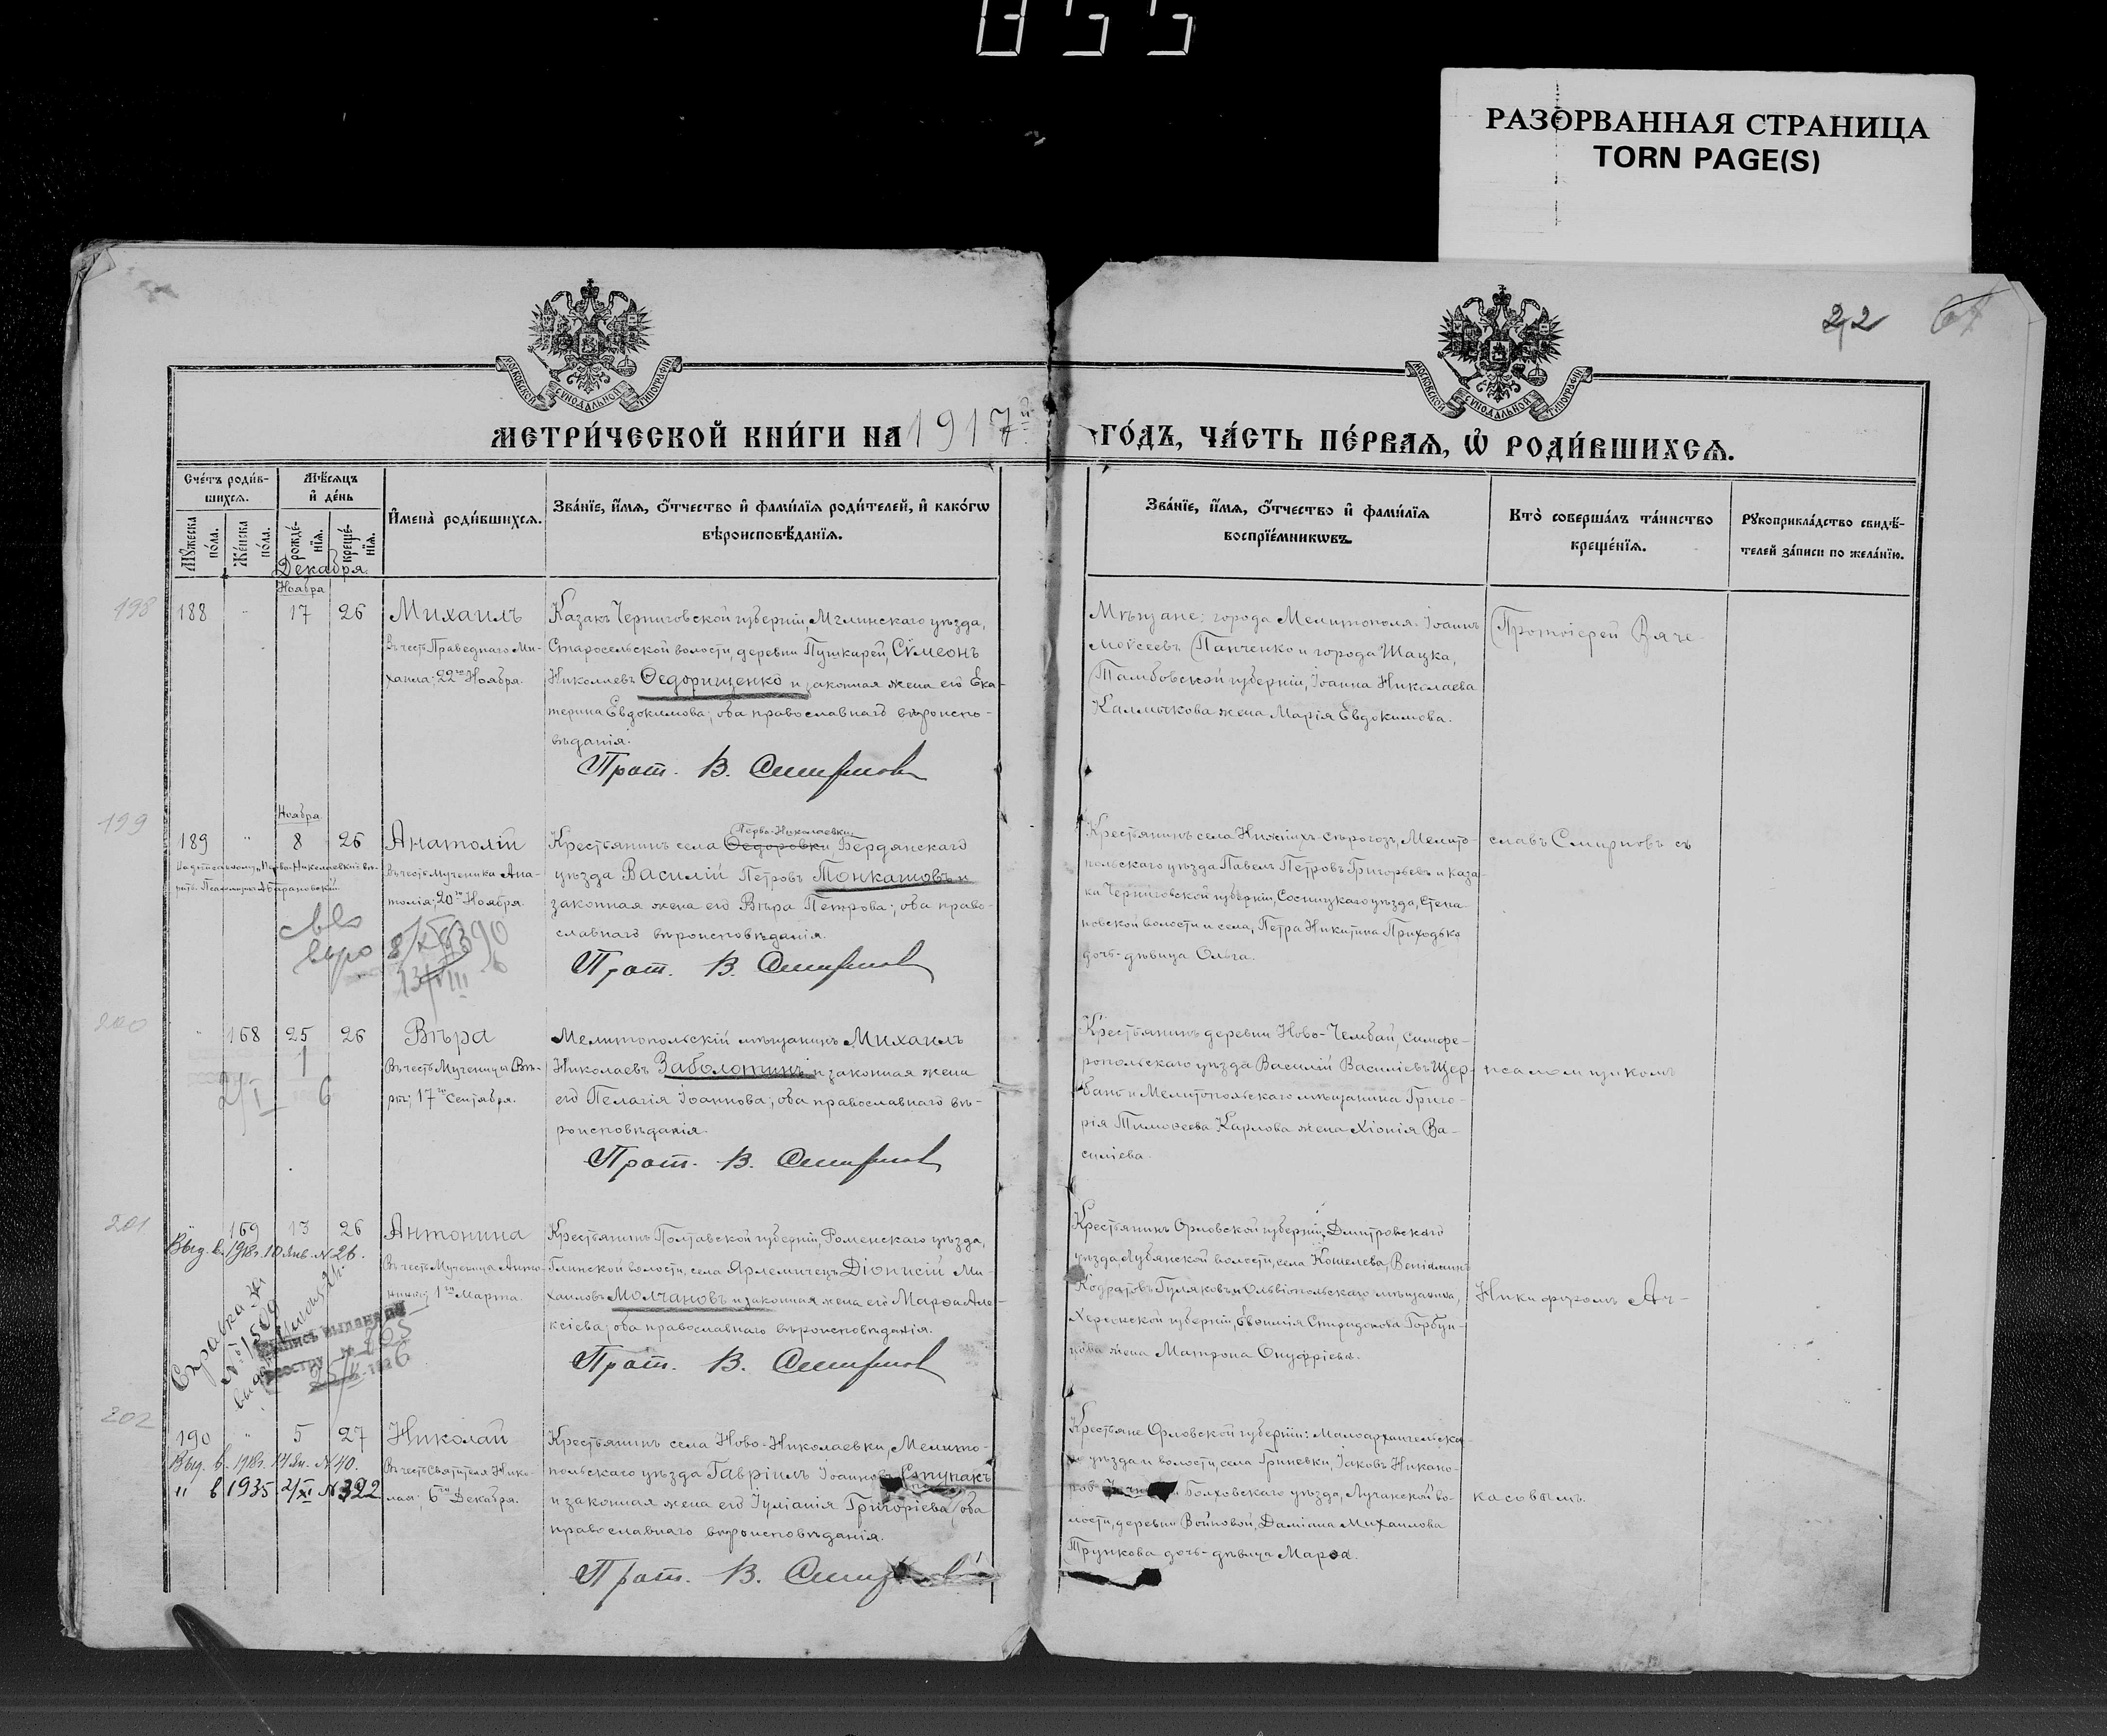 855
РАЗОРВАННАЯ СТРАНИЦА
TORN PAGE(S)
22
МОСКОВСКОЙ СѴНОДАЛЬНОЙ ТИПОГРАФІИ
МОСКОВСКОЙ СѴНОДАЛЬНОЙ ТИПОГРАФІИ
МЕТРИ́ЧЕСКОЙ КНИ́ГИ НА 1917й ГО́ДЪ, ЧА́СТЬ ПЕ́РВАѦ, Ѡ҆ РОДИ́ВШИХСѦ.
Сче́тъ роди́в-
шихсѧ.
Мꙋ́жеска по́ла.
Же́нска по́ла.
Мѣ́сѧцъ
и҆ де́нь
рожде́-
нїѧ.
креще́-
нїѧ.
Декабря.
И҆мена̀ роди́вшихсѧ.
Зва́нїе, и҆́мѧ, ѻ҆́тчество и҆ фами́лїѧ роди́телей, и҆ како́гѡ
вѣроисповѣ́данїѧ.
Зва́нїе, и҆́мѧ, ѻ҆́тчество и҆ фами́лїѧ
воспрїе́мникѡвъ.
Кто̀ соверша́лъ та́инство
креще́нїѧ.
Рꙋкоприкла́дство свидѣ́-
телей за́писи по жела́нїю.
198
Ноября
188 " 17 26
Михаилъ
Въ честь Праведнаго Ми-
хаила; 22го Ноября.
Казакъ Черниговской губерніи, Мглинскаго уѣзда,
Старосельской волости, деревни Пушкарей, Сѵмеонъ
Николаевъ Ѳедорищенко и законная жена его Ека-
терина Евдокимова; оба православнаго вѣроиспо-
вѣданія.
Прот. В. Смирновъ
Мѣщане: города Мелитополя Іоаннъ
Моѵсеевъ Панченко и города Шацка,
Тамбовской губерніи, Іоанна Николаева
Калмыкова жена Марія Евдокимова.
Протоіерей Вяче-
199
Ноября
189 " 8 26
Анатолій
Въ честь Мученика Ана-
толія; 20го Ноября.
Перво-Николаевки
Крестьянинъ села Ѳедоровки Бердянскаго
уѣзда Василій Петровъ Тонкашовъ и
законная жена его Вѣра Петрова; оба право-
славнаго вѣроисповѣданія.
Прот. В. Смирновъ
Крестьянинъ села Нижнихъ-Сѣрогозъ, Мелито-
польскаго уѣзда Павелъ Петровъ Григорьевъ и каза-
ка Черниговской губерніи, Сосницкаго уѣзда, Степа-
новской волости и села, Петра Никитина Приходько
дочь-дѣвица Ольга.
славъ Смирновъ съ
200
" 168 25 26
Вѣра
Въ честь Мученицы Вѣ-
ры; 17го Сентября.
Мелитопольскій мѣщанинъ Михаилъ
Николаевъ Заболотинъ и законная жена
его Пелагія Іоаннова; оба православнаго вѣ-
роисповѣданія.
Прот. В. Смирновъ
Крестьянинъ деревни Ново-Чембай, Симфе-
ропольскаго уѣзда Василій Василіевъ Щер-
банъ и Мелитопольскаго мѣщанина Григо-
рія Тимоѳеева Карлова жена Хіонія Ва-
силіева.
псаломщикомъ
201
169 13 26
Выд. в. 1918г. 10 Янв. № 26.
Антонина
Въ честь Мученицы Анто-
нины; 1го Марта.
Справка
№ 1509
Крестьянинъ Полтавской губерніи, Роменскаго уѣзда,
Глинской волости, села Ярлемичецъ Діонисій Ми-
хаиловъ Молчановъ и законная жена его Марѳа Але-
ксіева; оба православнаго вѣроисповѣданія.
Прот. В. Смирновъ
Крестьянинъ Орловской губерніи, Дмитровскаго
уѣзда, Лубянской волости, села Кошелева, Веніаминъ
Кодратовъ Гуляковъ и Ольвіопольскаго мѣщанина,
Херсонской губерніи, Евѳимія Спиридонова Горбун-
нова жена Матрона Онуфріева.
Никифоромъ Ач-
202
190 " 5 27
Выд. в. 1918г. 14 Ян. № 40.
" в 1935 2/XI № 322
Николай
Въ честь Святителя Нико-
лая; 6го Декабря.
Крестьянинъ села Ново-Николаевки, Мелито-
польскаго уѣзда Гавріилъ Іоанновъ Ступакъ
и законная жена его Іуліанія Григоріева; оба
православнаго вѣроисповѣданія.
Прот. В. Смирновъ
Крестьяне Орловской губерніи: Малоархангельска-
го уѣзда и волости, села Гриневки, Іаковъ Никано-
ровъ Болховскаго уѣзда, Лучанской во-
лости, деревни Войновой, Даміана Михаилова
Трункова дочь-дѣвица Марѳа.
касовымъ.